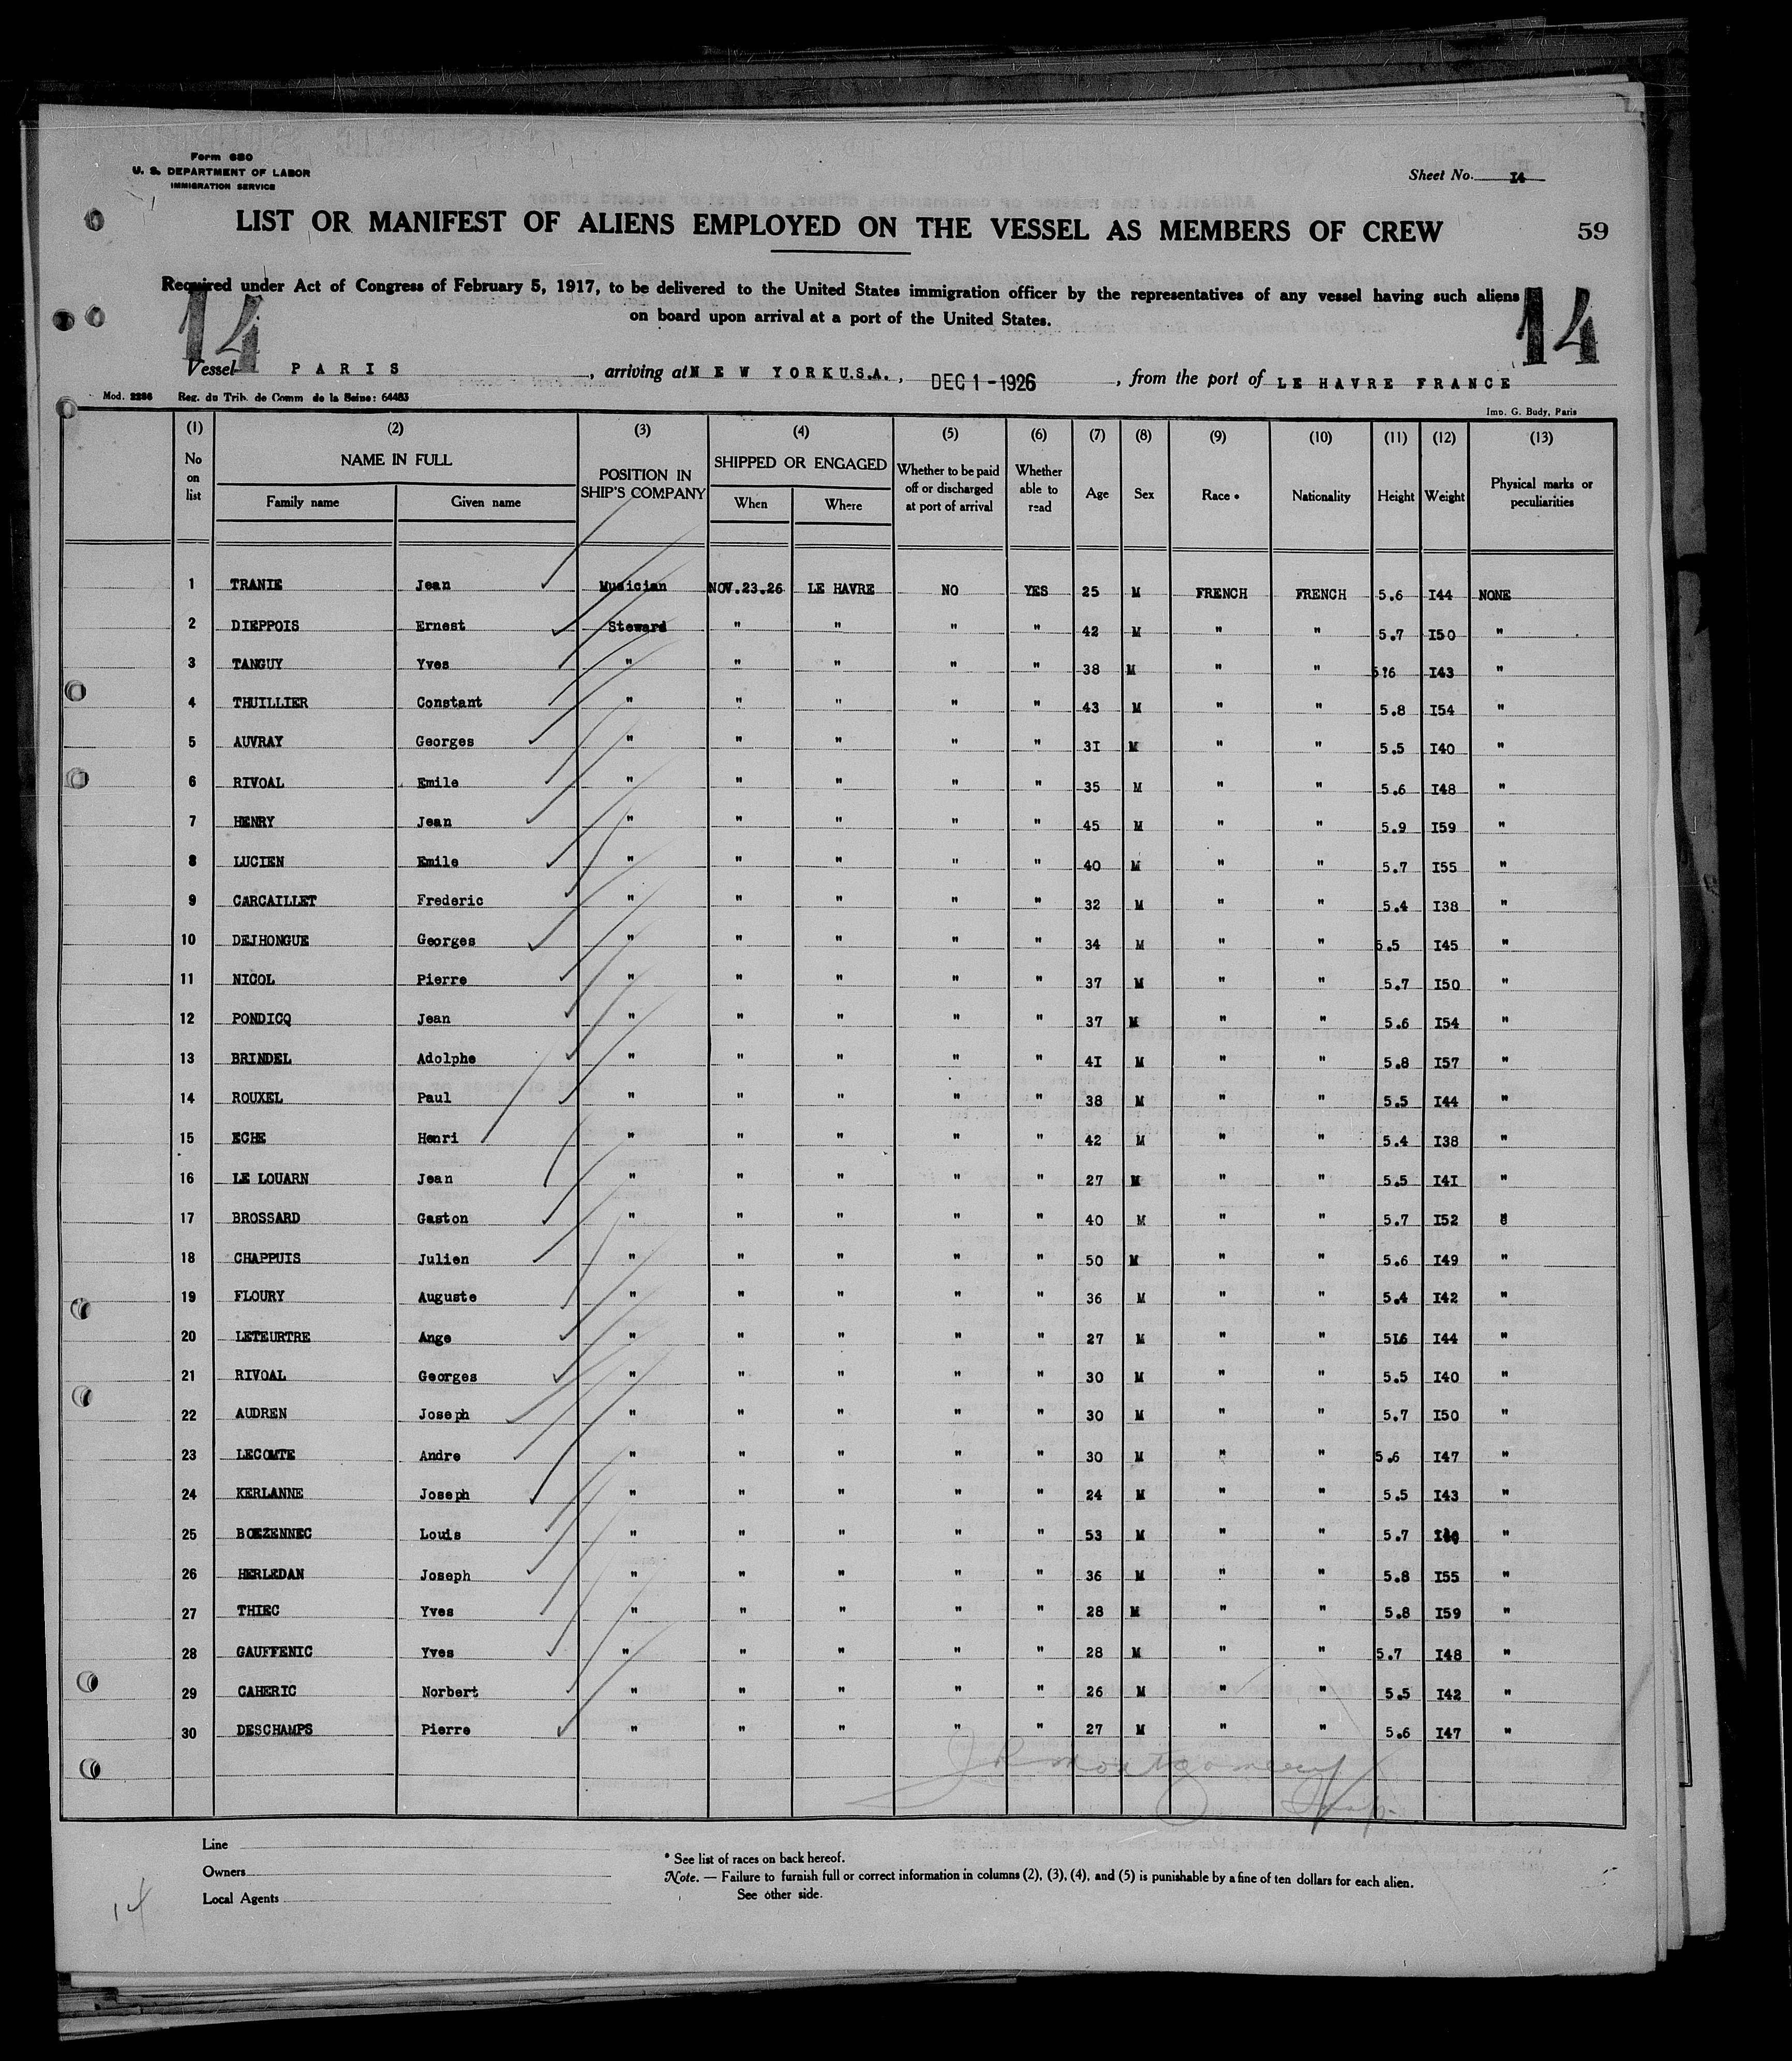 Form 680
U. S. DEPARTMENT OF LABOR
IMMIGRATION SERVICE
Sheet No. I4
LIST OR MANIFEST OF ALIENS EMPLOYED ON THE VESSEL AS MEMBERS OF CREW
59
Required under Act of Congress of February 5, 1917, to be delivered to the United States immigration officer by the representatives of any vessel having such aliens
on board upon arrival at a port of the United States.
14 14
Vessel PARIS, arriving at NEW YORK U.S.A., DEC 1-1926, from the port of LE HAVRE FRANCE
Mod. 2286 Reg. du Trib. de Comm de la Seine: 64483
Imp. G. Budy, Paris
(1) (2) (3) (4) (5) (6) (7) (8) (9) (10) (11) (12) (13)
No on list NAME IN FULL Family name Given name POSITION IN SHIP'S COMPANY SHIPPED OR ENGAGED When Where Whether to be paid off or discharged at port of arrival Whether able to read Age Sex Race * Nationality Height Weight Physical marks or peculiarities
1 TRANIE Jean Musician NOV.23.26 LE HAVRE NO YES 25 M FRENCH FRENCH 5.6 I44 NONE
2 DIEPPOIS Ernest Steward " " " " 42 M " " 5.7 I50 "
3 TANGUY Yves " " " " " 38 M " " 5?6 I43 "
4 THUILLIER Constant " " " " " 43 M " " 5.8 I54 "
5 AUVRAY Georges " " " " " 3I M " " 5.5 I40 "
6 RIVOAL Emile " " " " " 35 M " " 5.6 I48 "
7 HENRY Jean " " " " " 45 M " " 5.9 I59 "
8 LUCIEN Emile " " " " " 40 M " " 5.7 I55 "
9 CARCAILLET Frederic " " " " " 32 M " " 5.4 I38 "
10 DEJHONGUE Georges " " " " " 34 M " " 5.5 I45 "
11 NICOL Pierre " " " " " 37 M " " 5.7 I50 "
12 PONDICQ Jean " " " " " 37 M " " 5.6 I54 "
13 BRINDEL Adolphe " " " " " 4I M " " 5.8 I57 "
14 ROUXEL Paul " " " " " 38 M " " 5.5 I44 "
15 ECHE Henri " " " " " 42 M " " 5.4 I38 "
16 LE LOUARN Jean " " " " " 27 M " " 5.5 I4I "
17 BROSSARD Gaston " " " " " 40 M " " 5.7 I52 "
18 CHAPPUIS Julien " " " " " 50 M " " 5.6 I49 "
19 FLOURY Auguste " " " " " 36 M " " 5.4 I42 "
20 LETEURTRE Ange " " " " " 27 M " " 5I6 I44 "
21 RIVOAL Georges " " " " " 30 M " " 5.5 I40 "
22 AUDREN Joseph " " " " " 30 M " " 5.7 I50 "
23 LECOMTE Andre " " " " " 30 M " " 5.6 I47 "
24 KERLANNE Joseph " " " " " 24 M " " 5.5 I43 "
25 BOEZENNEC Louis " " " " " 53 M " " 5.7 "
26 HERLEDAN Joseph " " " " " 36 M " " 5.8 I55 "
27 THIEC Yves " " " " " 28 M " " 5.8 I59 "
28 GAUFFENIC Yves " " " " " 28 M " " 5.7 I48 "
29 CAHERIC Norbert " " " " " 26 M " " 5.5 I42 "
30 DESCHAMPS Pierre " " " " " 27 M " " 5.6 I47 "
JR Montgomery
Insp.
Line
Owners
Local Agents
* See list of races on back hereof.
Note. — Failure to furnish full or correct information in columns (2), (3), (4), and (5) is punishable by a fine of ten dollars for each alien.
See other side.
14